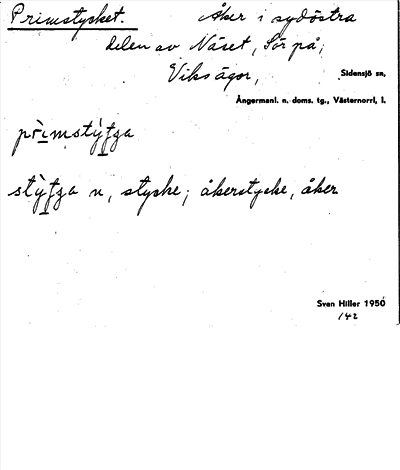 Primstycket. Åker i sydöstra
delen av Näset, Sör på,
Viks ägor,
Sidensjö sn,
Ångermanl. n. doms. tg., Västernorrl, l.
prìmstỳtga
stỳtga n, stycke; åkerstycke, åker
Sven Hiller 1950
142